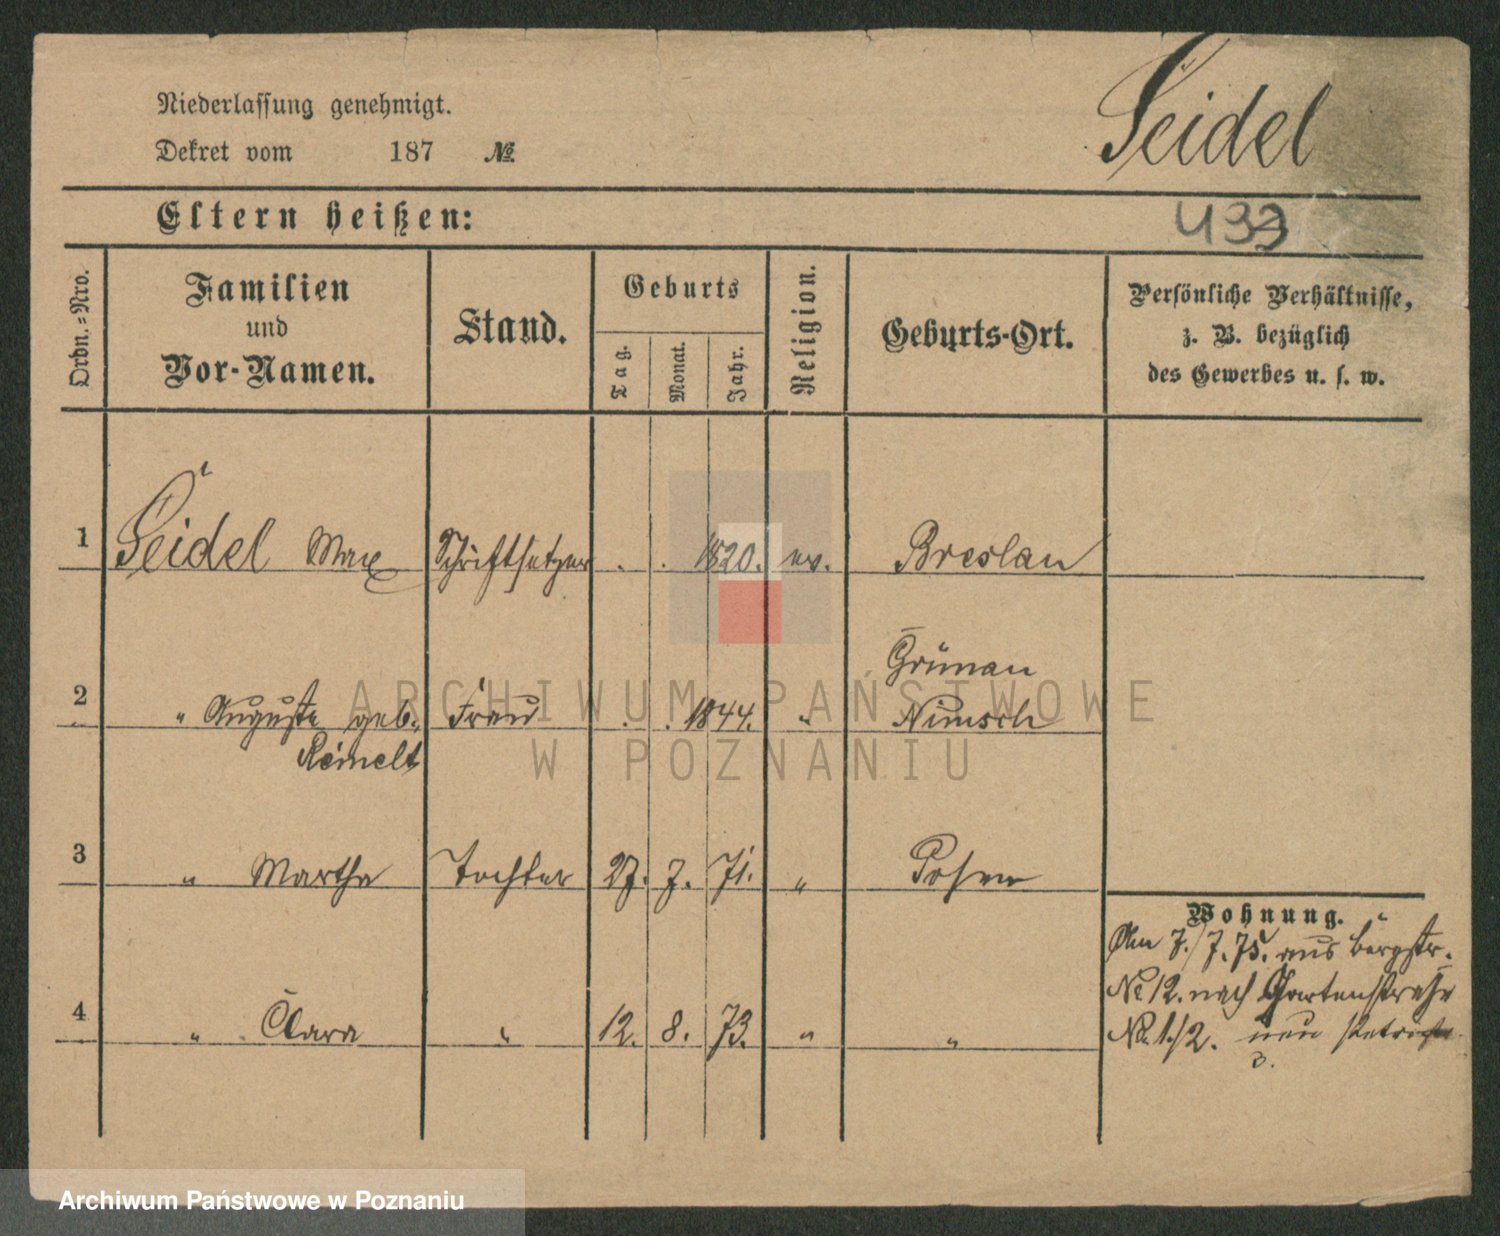 Niederlassung genehmigt.
Dekret vom 187 №
Seidel
Eltern heißen:
433
Ordn.=Nro.
Familien
und
Vor-Namen.
Stand.
Geburts
Tag.
Monat.
Jahr.
Religion.
Geburts-Ort.
Persönliche Verhältnisse,
z. B. bezüglich
des Gewerbes u. s. w.
1 Seidel Max Schriftsetzer . . 1820. ev. Breslau
Grünau
2 " Auguste geb. Frau . . 1844. " Nimsch
Reinelt
3 " Martha Tochter 27. 7. 71. " Posen
Wohnung.
Am 7./7.75. aus Bergstr.
№ 12. nach Gartenstraße
4 " Clara " 12. 8. 73. " "
№ 1./2.
3.
ARCHIWUM PAŃSTWOWE
W POZNANIU
Archiwum Państwowe w Poznaniu